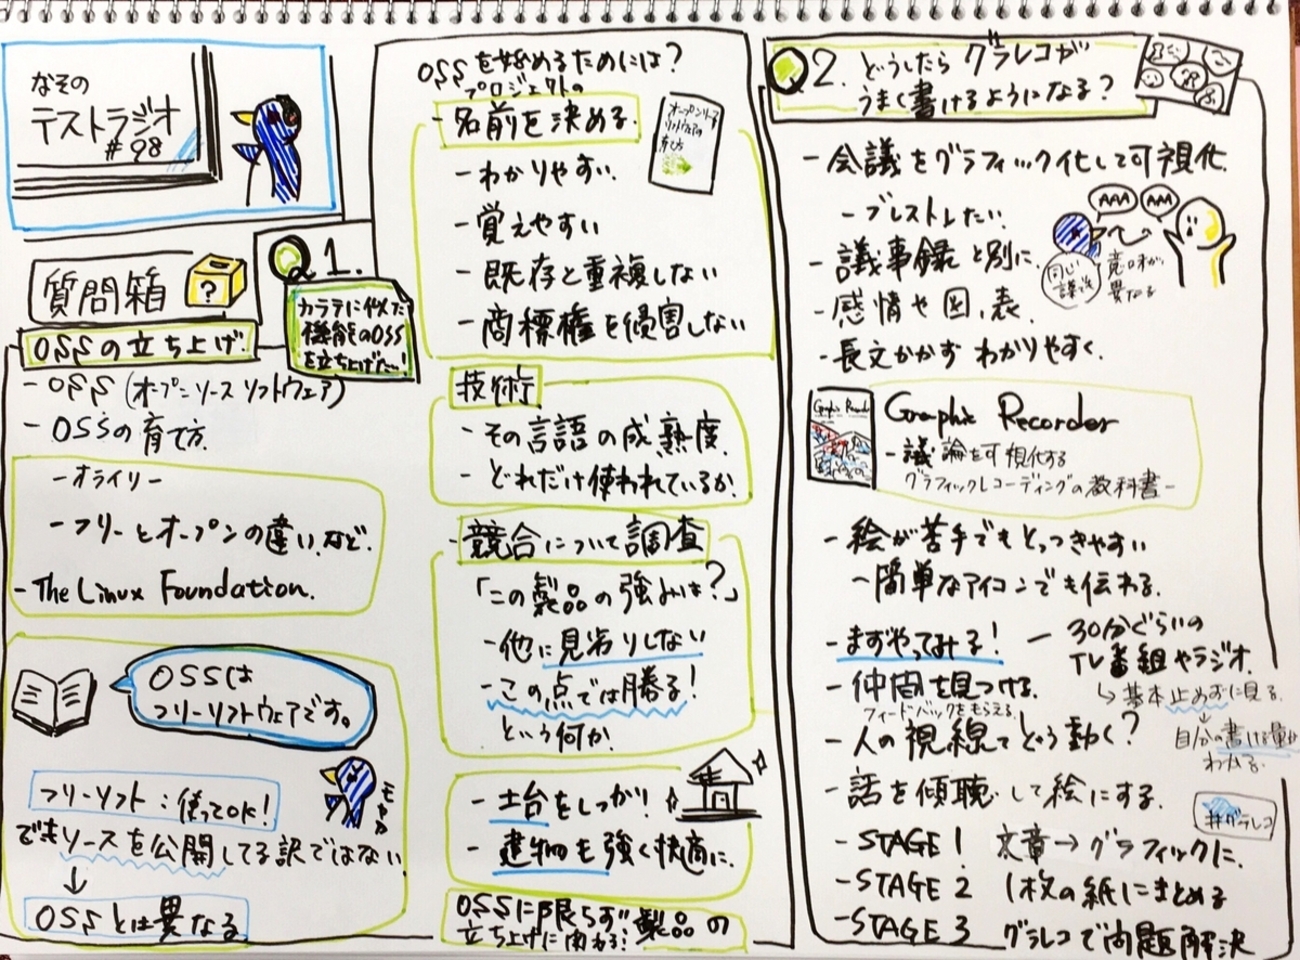 なその
テストラジオ
#98
質問箱
?
Q1.
カラテに似た
機能のOSS
を立ち上げた…!
OSSの立ち上げ
- OSS (オープンソースソフトウェア)
- OSSの育て方
- オライリー
- フリーとオープンの違い、など.
- The Linux Foundation.
OSSは
フリーソフトウェアです。
モヤァ
フリーソフト:使ってOK!
でもソースを公開してる訳ではない
↓
OSSとは異なる
OSSを始めるためには?
プロジェクトの
- 名前を決める.
オープンソース
ソフトウェアの
育て方
- わかりやすい.
- 覚えやすい
- 既存と重複しない
- 商標権を侵害しない
技術
- その言語の成熟度.
- どれだけ使われているか.
- 競合について調査
「この製品の強みは?」
- 他に見劣りしない
- この点では勝る!
という何か.
- 土台をしっかり!
- 建物も強く快適に.
OSSに限らず製品の
立ち上げに関わる!
Q2. どうしたらグラレコが
うまく書けるようになる?
- 会議をグラフィック化して可視化.
- ブレストしたい.
AAA
AAA
- 議事録と別に.
同じ
議送
意味が
異なる
- 感情や図、表.
- 長文かかず わかりやすく.
Graphic Recorder
Graphic Recorder
- 議論を可視化する
グラフィックレコーディングの教科書 -
- 絵が苦手でもとっつきやすい
- 簡単なアイコンでも伝わる.
- まずやってみる! - 30分ぐらいの
TV番組やラジオ.
↳ 基本止めずに見る.
↓
自分の書ける量が
わかる.
- 仲間を見つける.
フィードバックをもらえる.
- 人の視線てどう動く?
- 話を傾聴して絵にする.
#グラレコ
- STAGE 1 文章→グラフィックに.
- STAGE 2 1枚の紙にまとめる
- STAGE 3 グラレコで問題解決